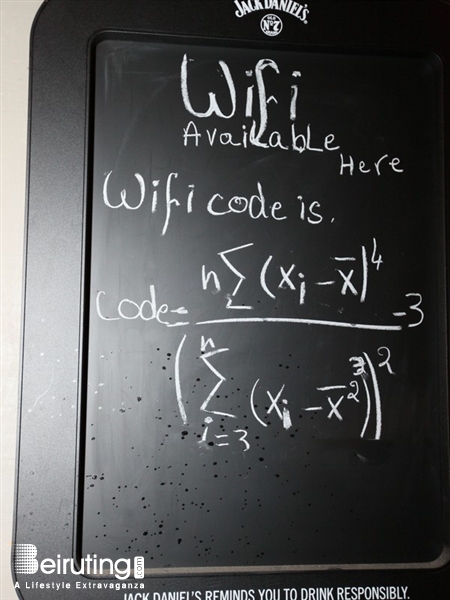 JACK DANIEL'S
OLD
No 7
BRAND
Wifi
Available
Here
Wifi code is.
Code = n∑(xi − x̄)⁴ − 3
(n∑i=3 (xi − x̄²)³)²
Beiruting.com
A Lifestyle Extravaganza
JACK DANIEL'S REMINDS YOU TO DRINK RESPONSIBLY.